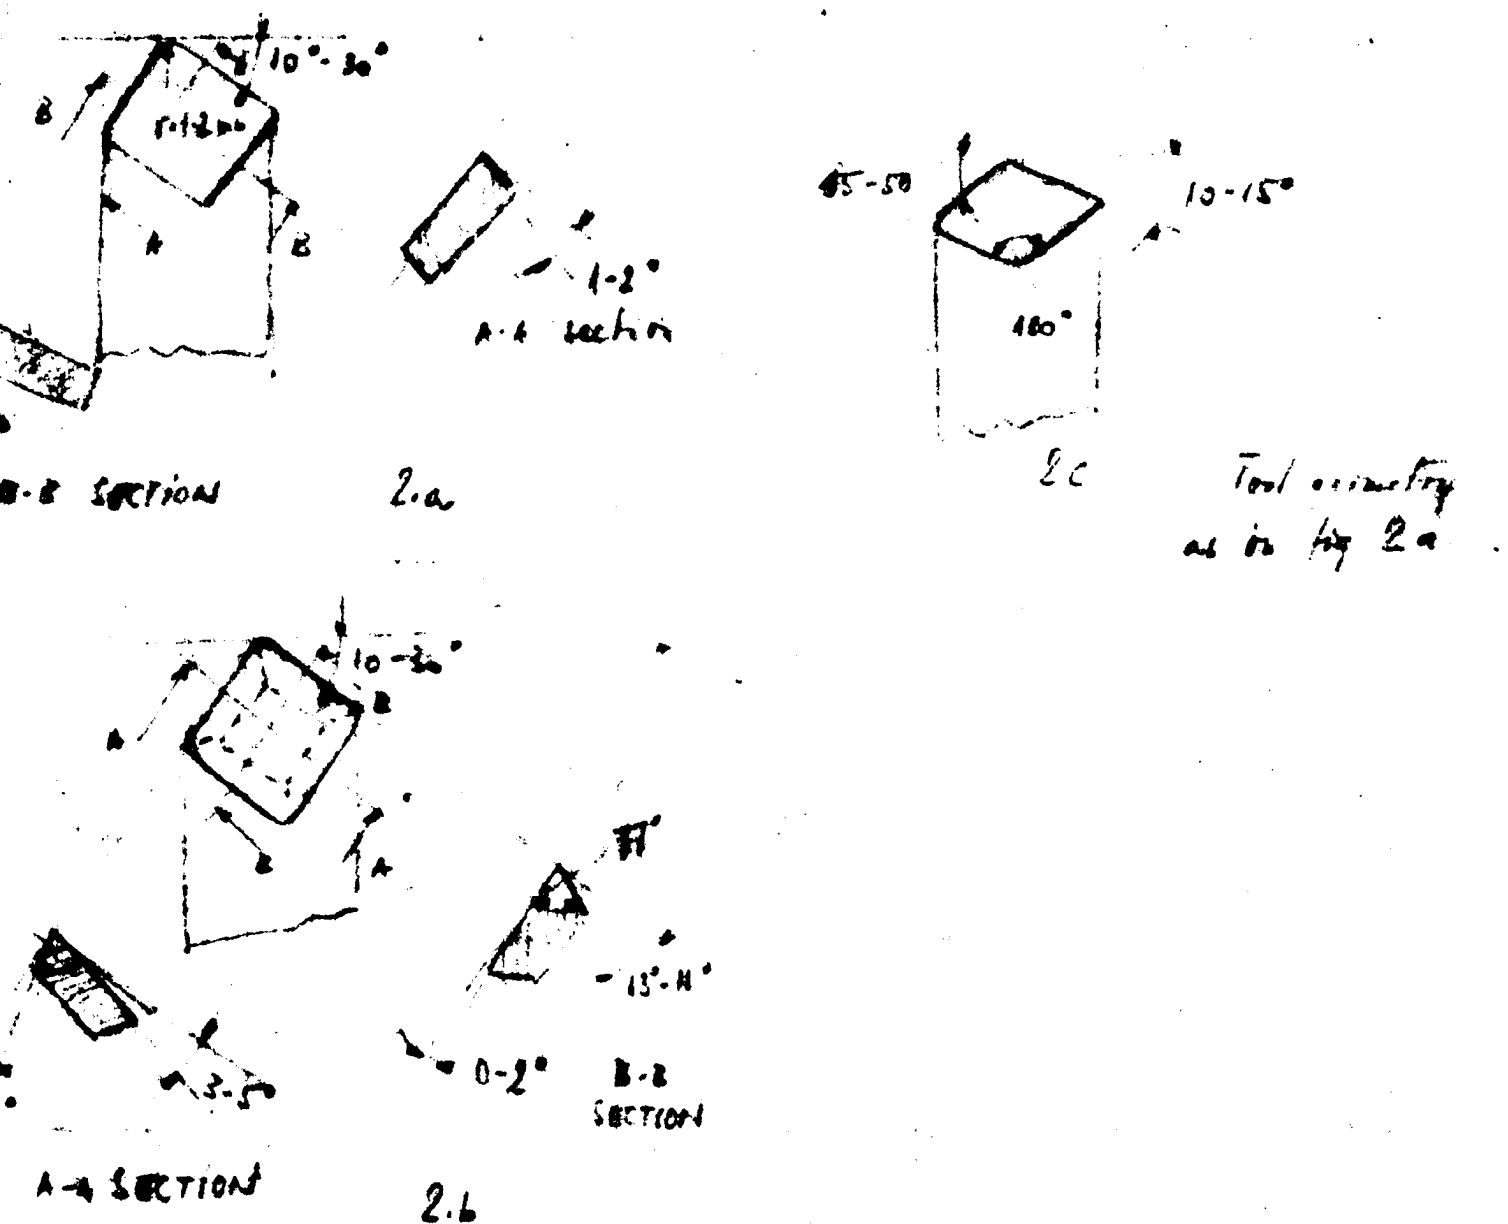 10°-30°
B
A
B
1-2°
A-A section
B-B SECTION
2.a
45-50
10-15°
180°
2c
Tool geometry
as in fig 2a
10-30°
B
A
B
A
0-2°
B-B
SECTION
3-5°
A-A SECTION
2.b